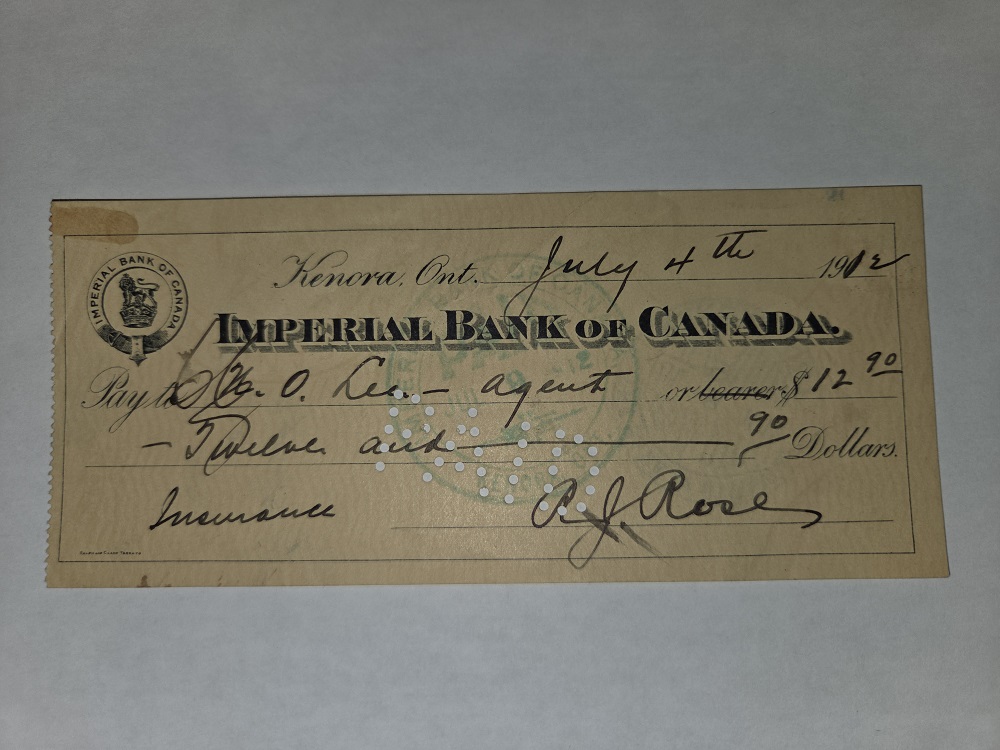 IMPERIAL BANK OF CANADA
Kenora, Ont. July 4th 1912
IMPERIAL BANK OF CANADA.
Pay to O. Lee - agent or bearer $ 12 90
- Twelve and 90 Dollars.
Insurance
R. J. Rose